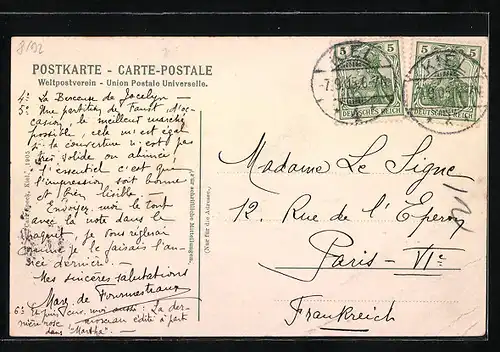 8/92
POSTKARTE - CARTE-POSTALE
Weltpostverein - Union Postale Universelle.
5 5
KIEL
DEUTSCHES REICH
5 5
KIEL
DEUTSCHES REICH
4° La Berceuse de Jocelyn —
5° Une partition de Faust d'oc-
casion, le meilleur marché
possible, cela m'est égal
si la couverture n'est pas
très solide ou abîmée,
l'essentiel c'est que
l'impression soit bonne
et bien lisible.
Envoyez moi le tout
avec la note dans le
paquet, je vous réglerai
comme je le faisais l'an-
née dernière. —
Mes sincères salutations
Marg. de
6° Et puis moi aussi: La der-
nière rose morceau édité à part
dans "Martha".
(Nur für die Adresse).
Madame Le Signe
12, Rue de l'Eperon
Paris - VIe
Frankreich